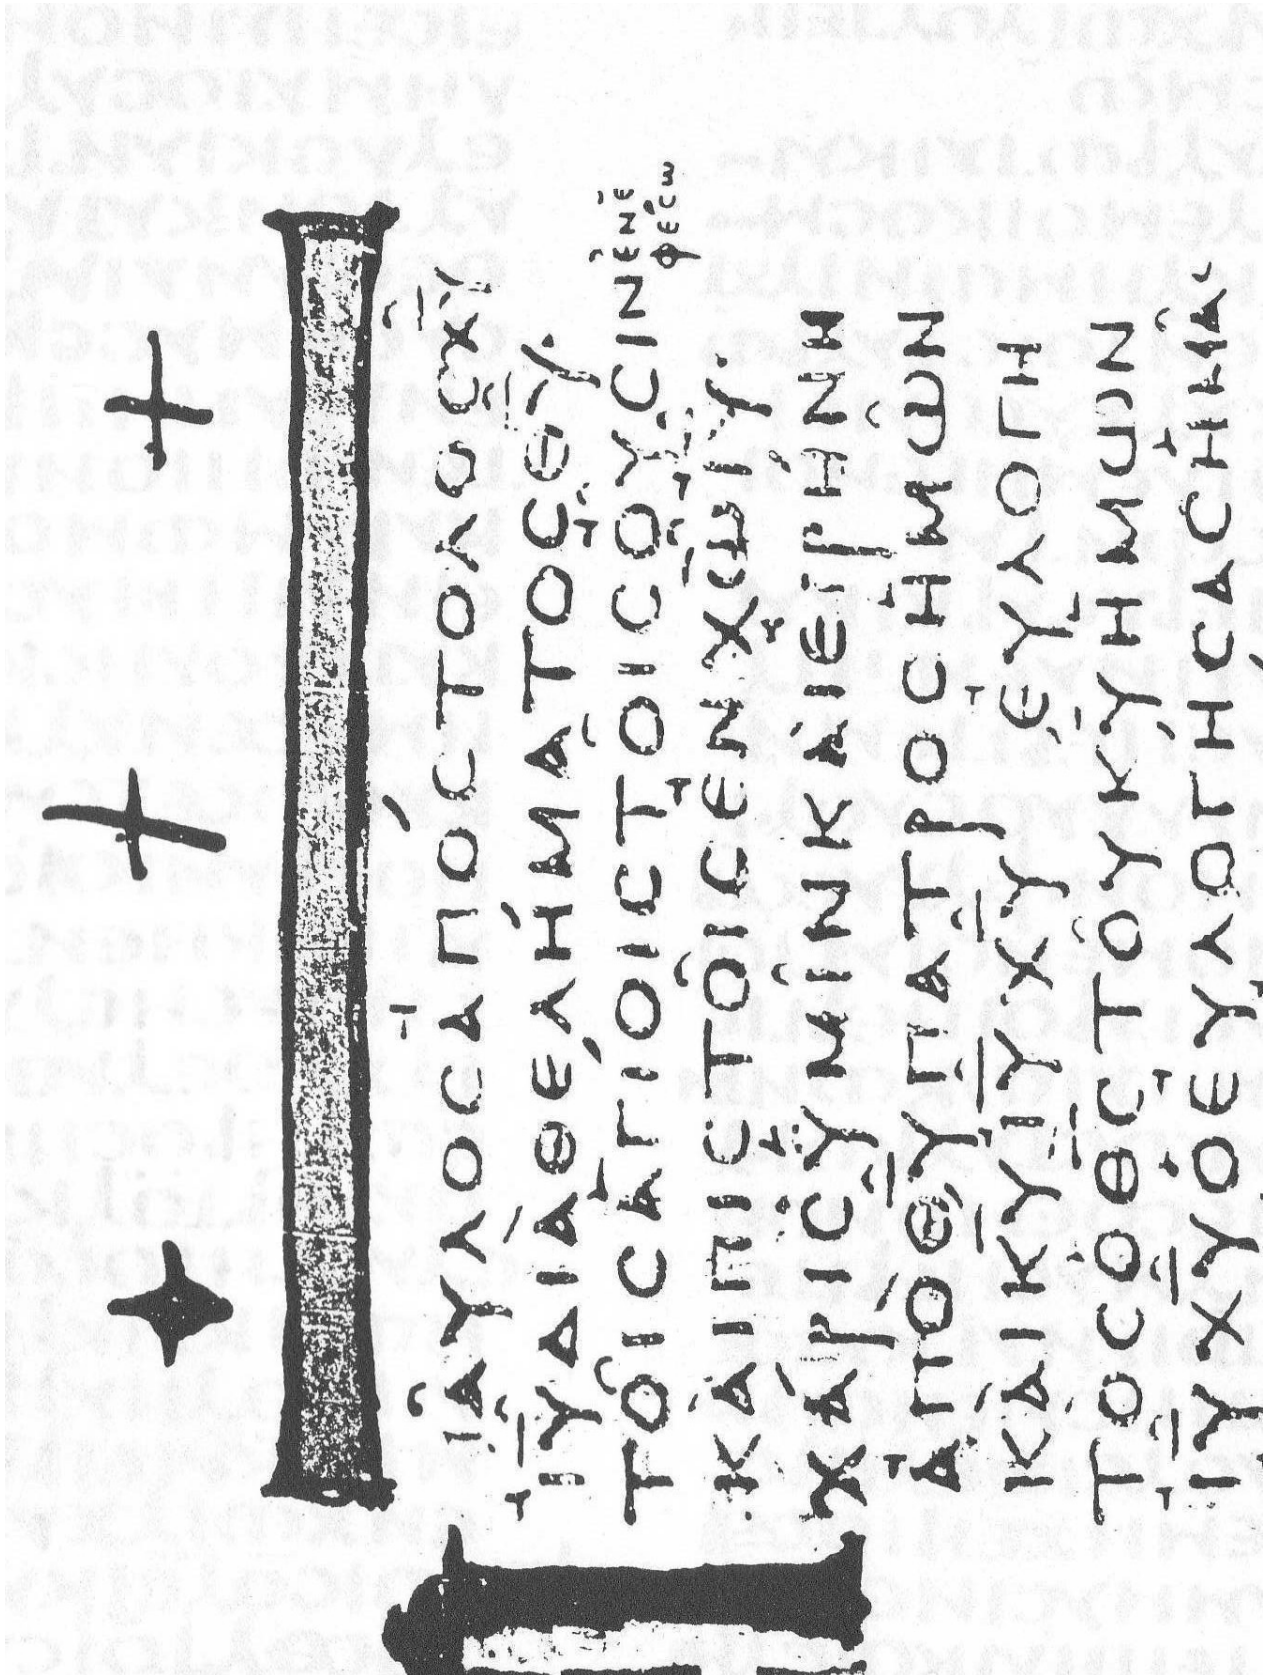 ΠΑΥΛΟCΑΠΟCΤΟΛΟCΧΥ
ΙΥΔΙΑΘΕΛΗΜΑΤΟCΘΥ
ΤΟΙCΑΓΙΟΙCΤΟΙCΟΥCΙΝ ἐν ἐ
φέσω
ΚΑΙΠΙCΤΟΙCΕΝΧΩΙΥ·
ΧΑΡΙCΥΜΙΝΚΑΙΕΙΡΗΝΗ
ΑΠΟΘΥΠΑΤΡΟCΗΜΩΝ
ΚΑΙΚΥΙΥΧΥ ΕΥΛΟΓΗ
ΤΟCΟΘCΤΟΥΚΥΗΜΩΝ
ΙΥΧΥΟΕΥΛΟΓΗCΑCΗΜΑC